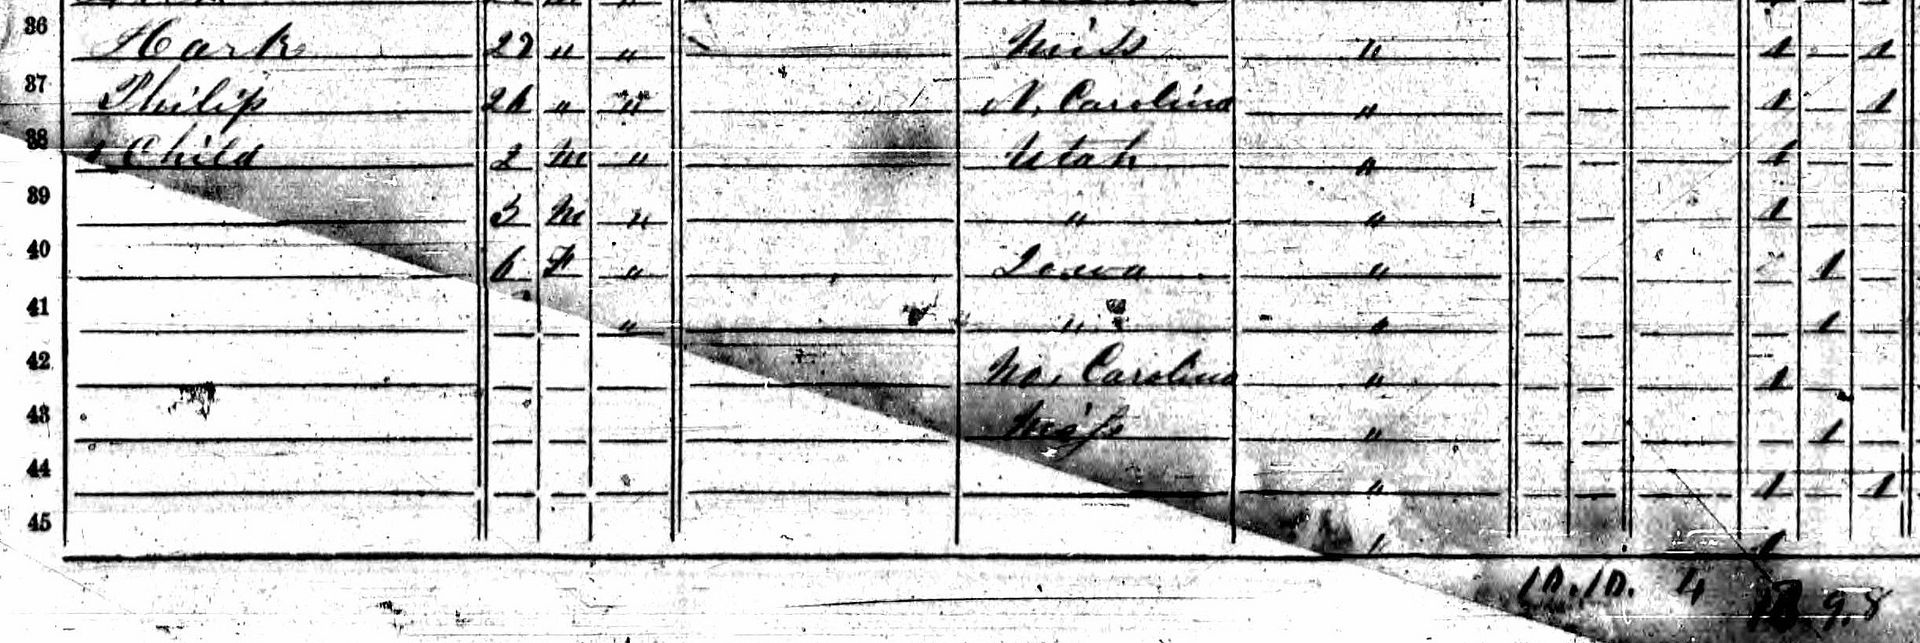 36 Hark 27 " " Miss " 1 1
37 Philip 26 " " N. Carolina " 1 1
38 " Child 2 M " Utah " 1
39 3 M " " " 1
40 6 F " Iowa " 1
41 " " " 1
42 No. Carolina " 1
43 Miss " 1
44 " 1 1
45 " 1
10. 10. 4 9 8